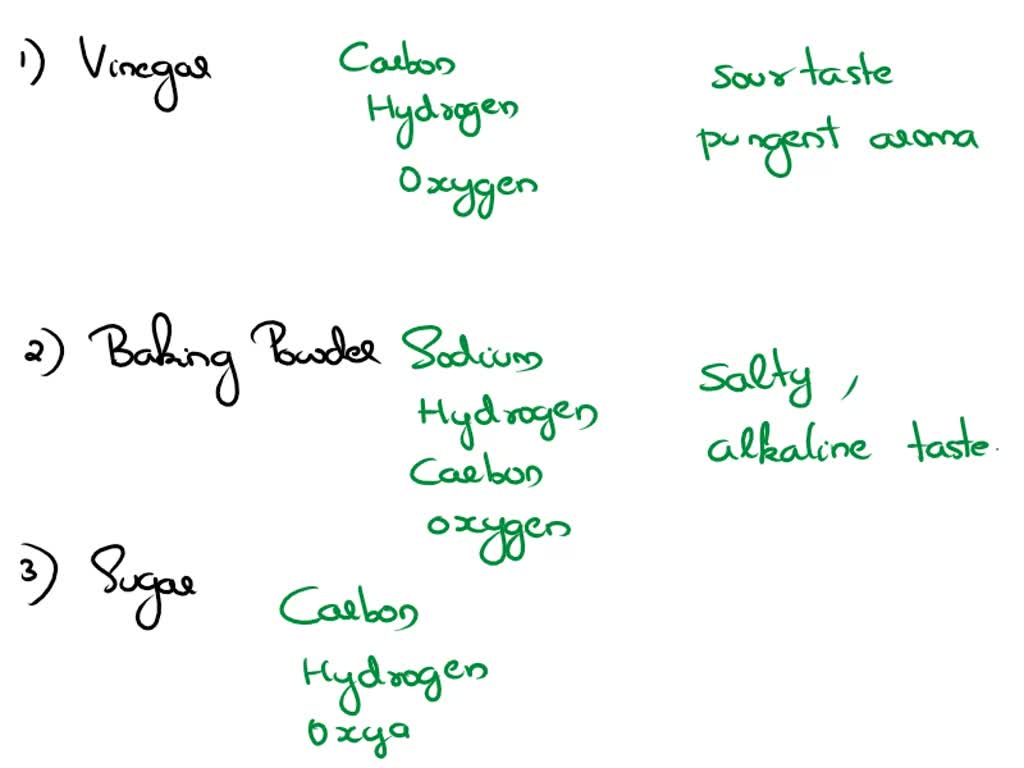 1) Vinegar Carbon sour taste
Hydrogen pungent aroma
Oxygen
2) Baking Powder Sodium salty,
Hydrogen alkaline taste.
Carbon
oxygen
3) Sugar Carbon
Hydrogen
Oxya